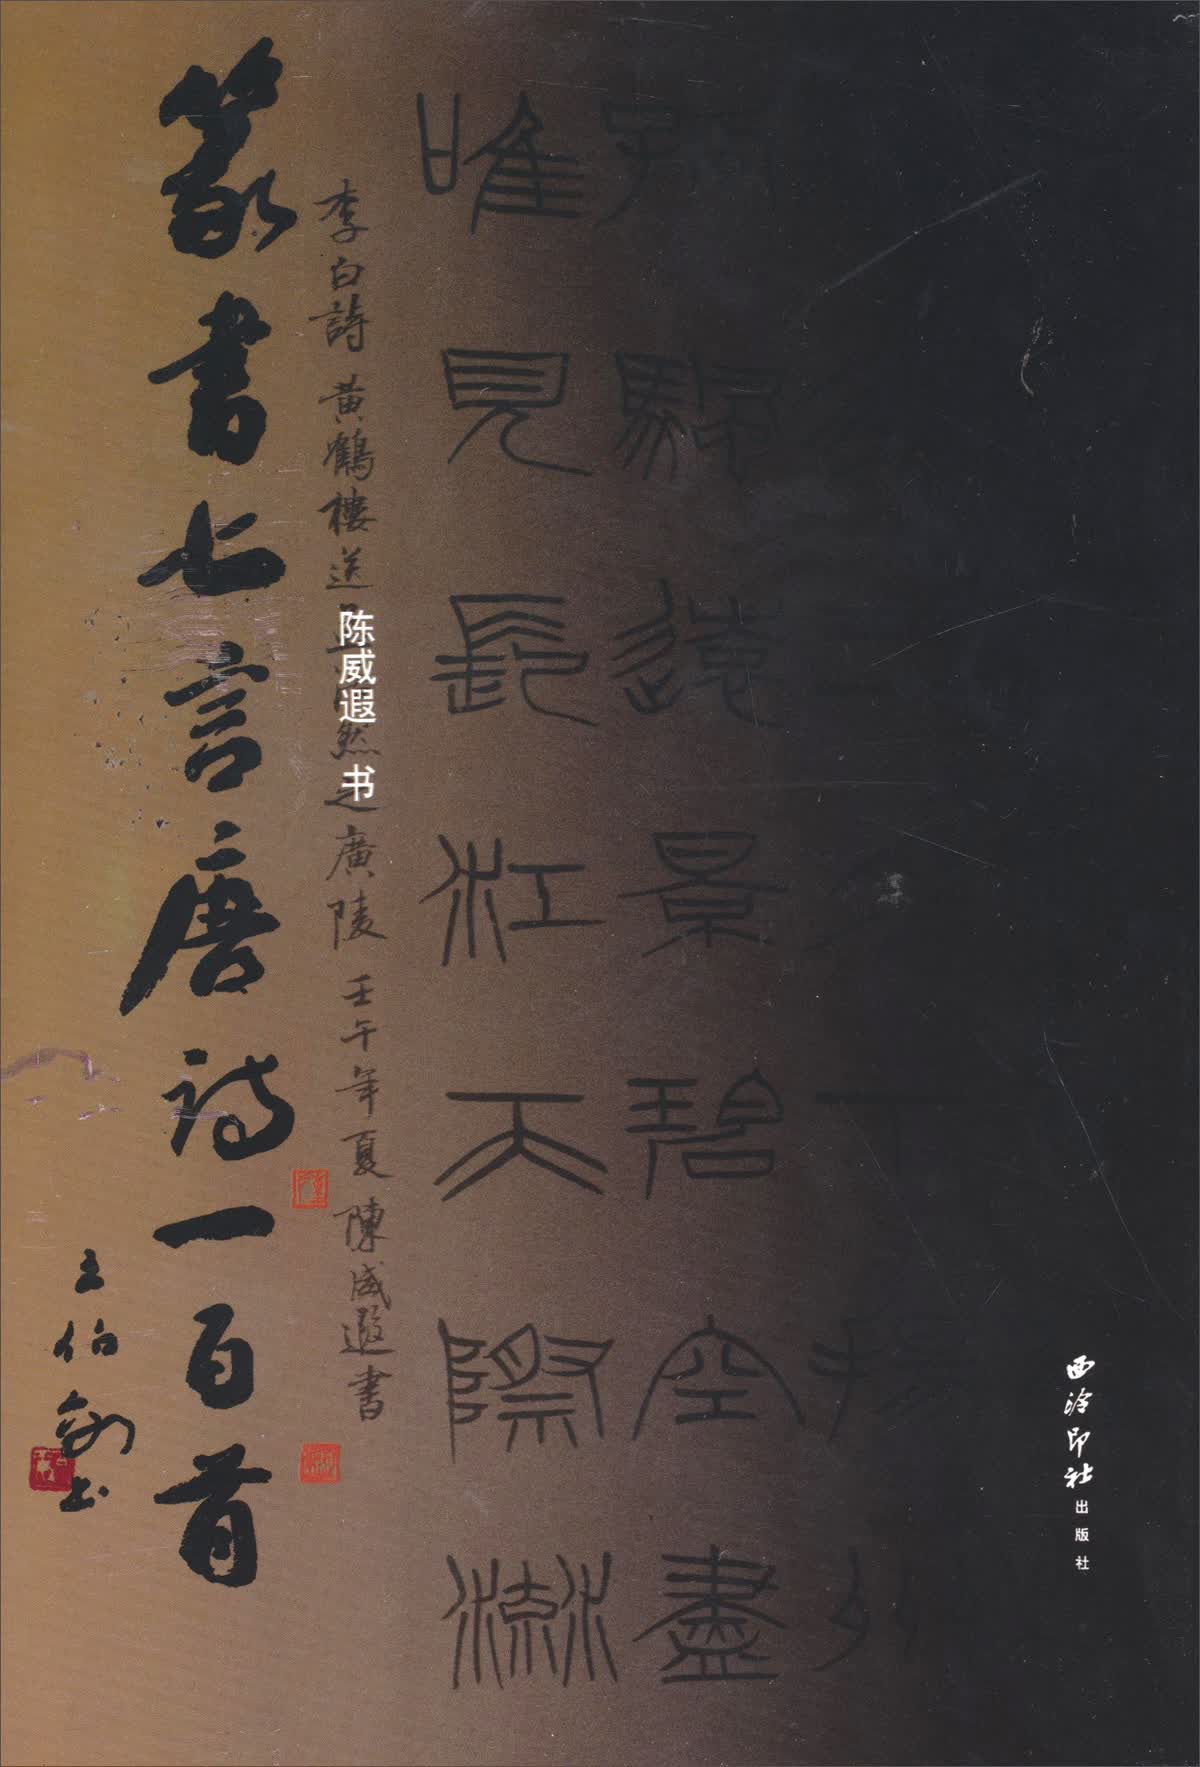 篆書七言唐诗一百首
王伯敏书
陈威遐 书
孤颿遠景碧空盡
唯見長江天際流
李白詩 黃鶴樓送孟浩然之廣陵 壬午年夏 陳威遐書
西泠印社
出版社